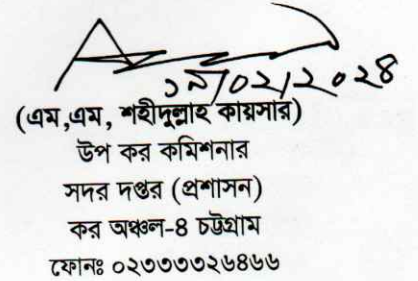 ১৯/০২/২০২৪
(এম,এম, শহীদুল্লাহ কায়সার)
উপ কর কমিশনার
সদর দপ্তর (প্রশাসন)
কর অঞ্চল-৪ চট্টগ্রাম
ফোনঃ ০২৩৩৩৩২৬৪৬৬